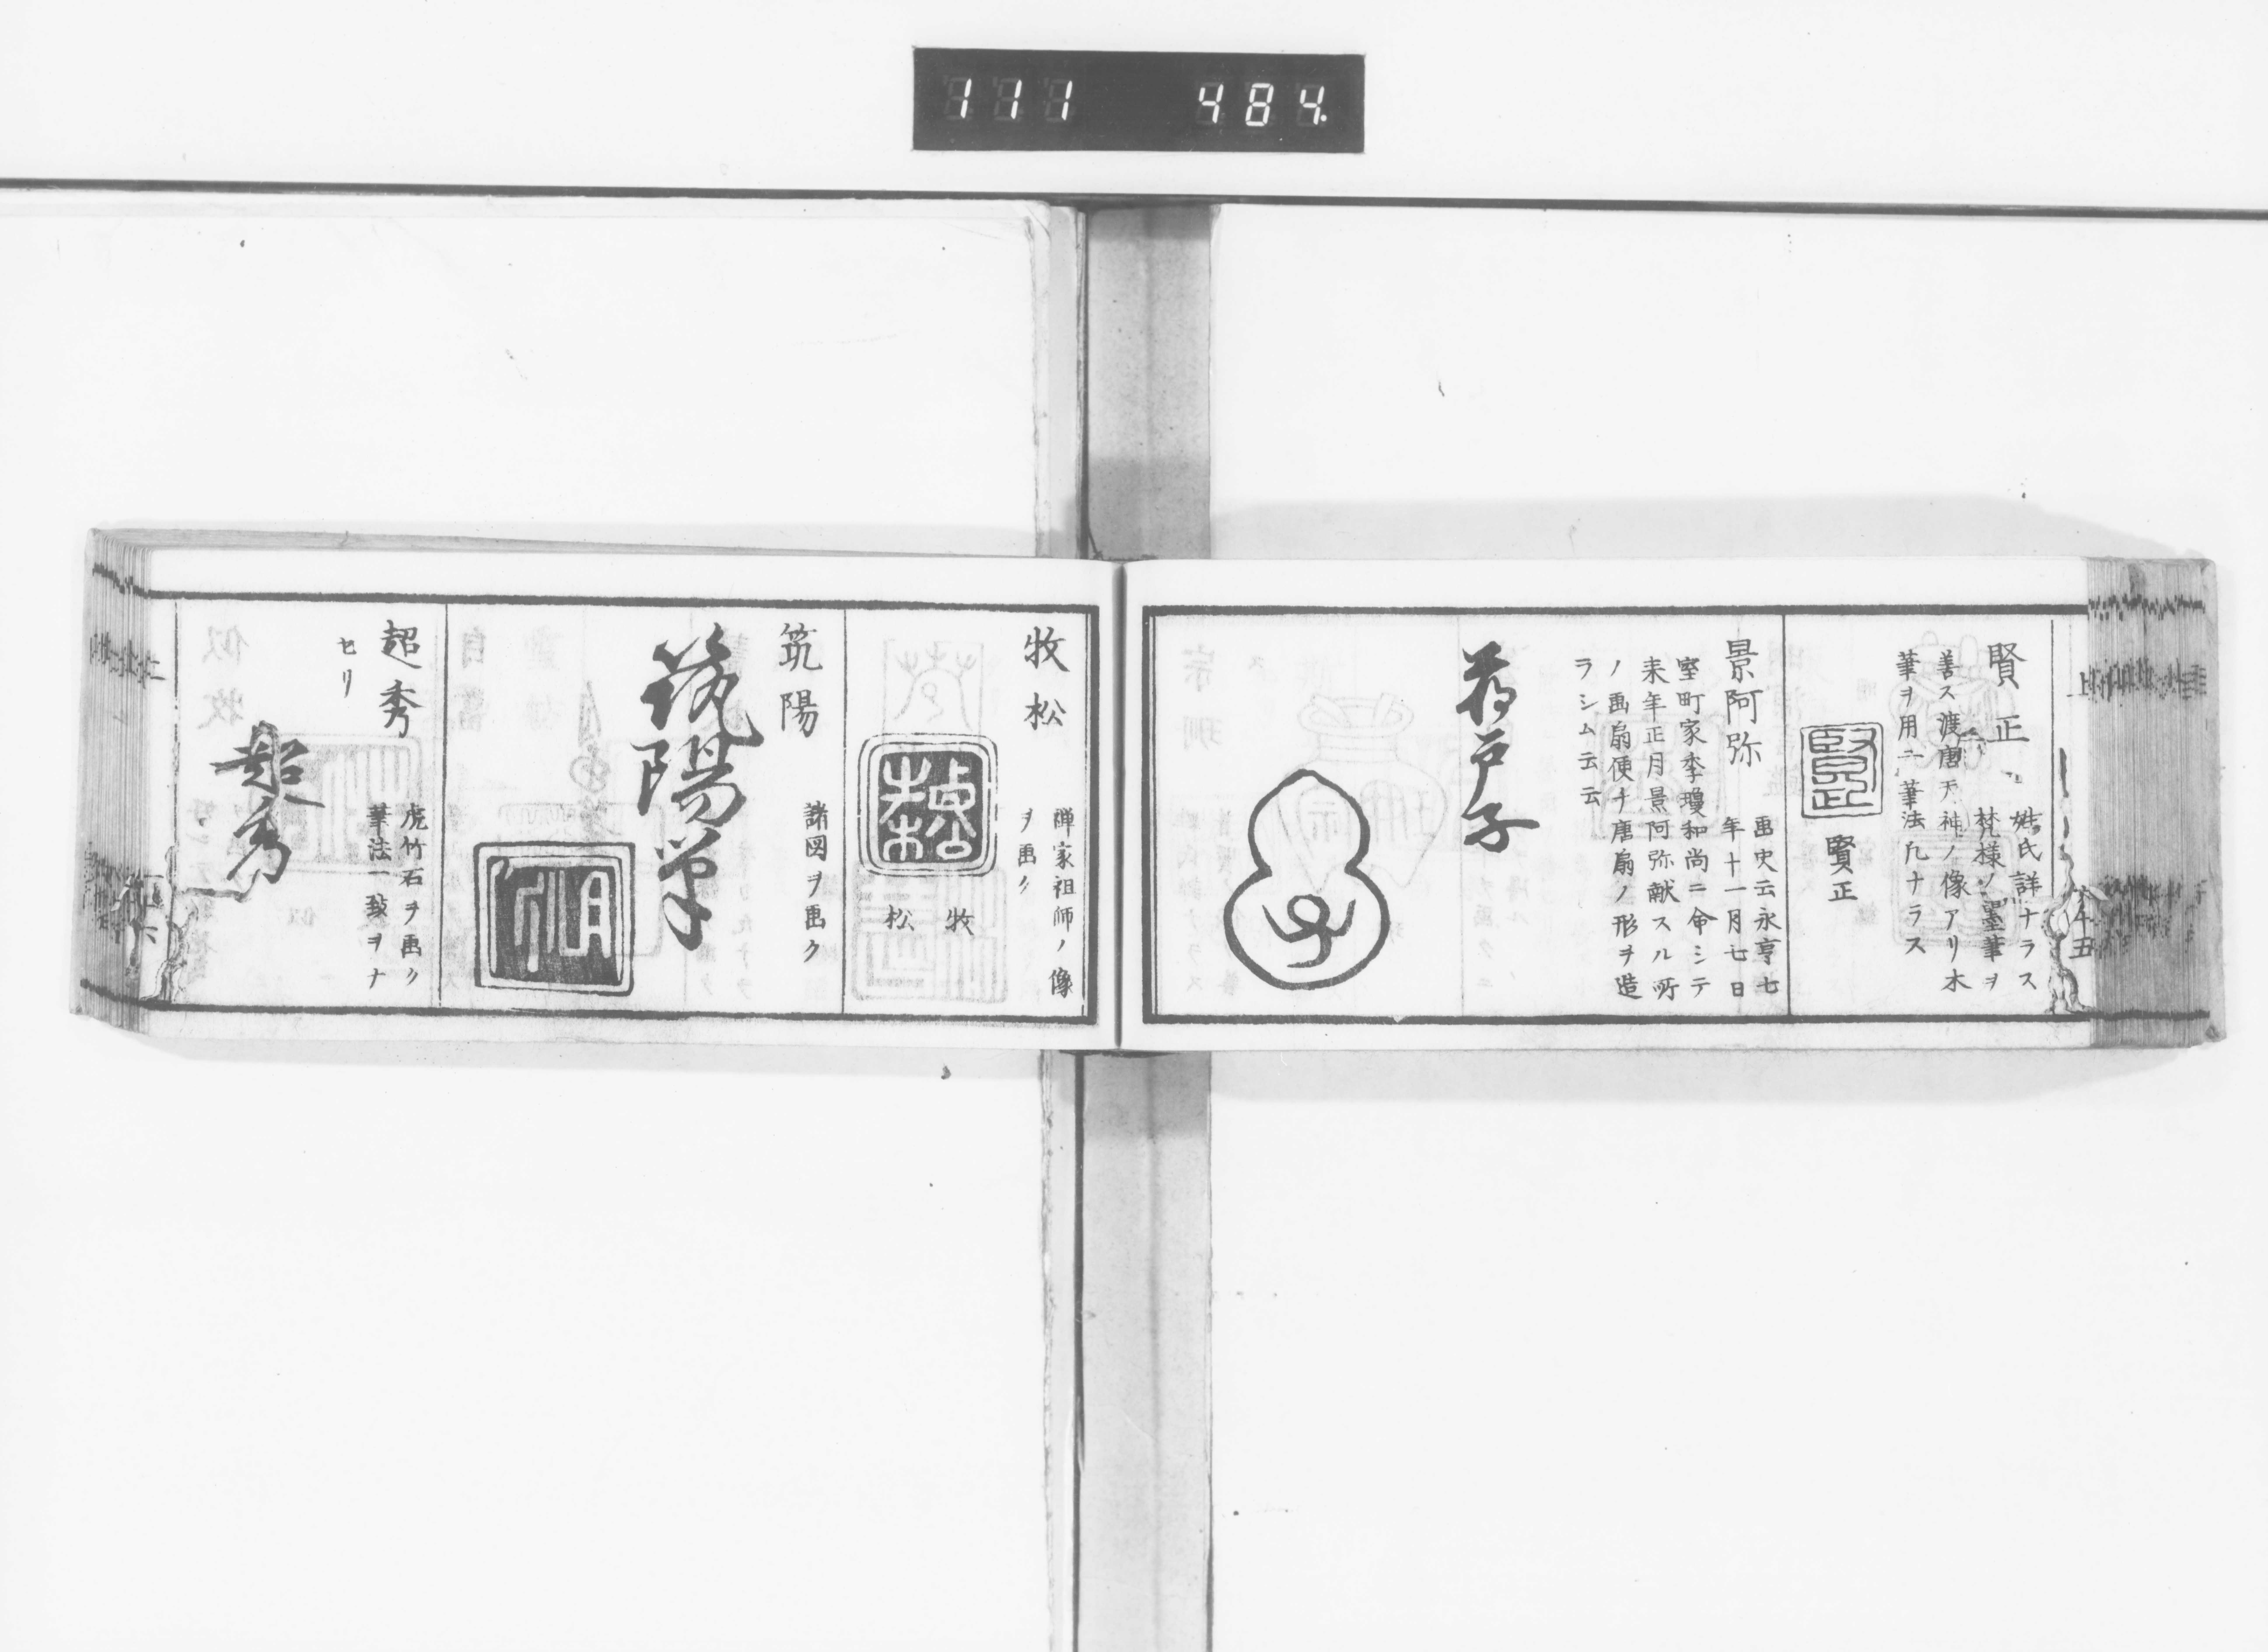 111 484.
賢正
姓氏詳ナラス
梵様ノ墨筆ヲ
善ス渡唐天神ノ像アリ木
筆ヲ用ユ筆法凡ナラス
賢正
賢正
景阿弥
画史云永亨七
年十一月七日
室町家季瓊和尚ニ命シテ
来年正月景阿弥献スル所
ノ画扇便チ唐扇ノ形ヲ造
ラシム云云
牧松
禅家祖師ノ像
ヲ画ク
牧
松
筑陽
諸図ヲ画ク
筑陽筆
超秀
虎竹石ヲ画ク
筆法一致ヲナ
セリ
超秀